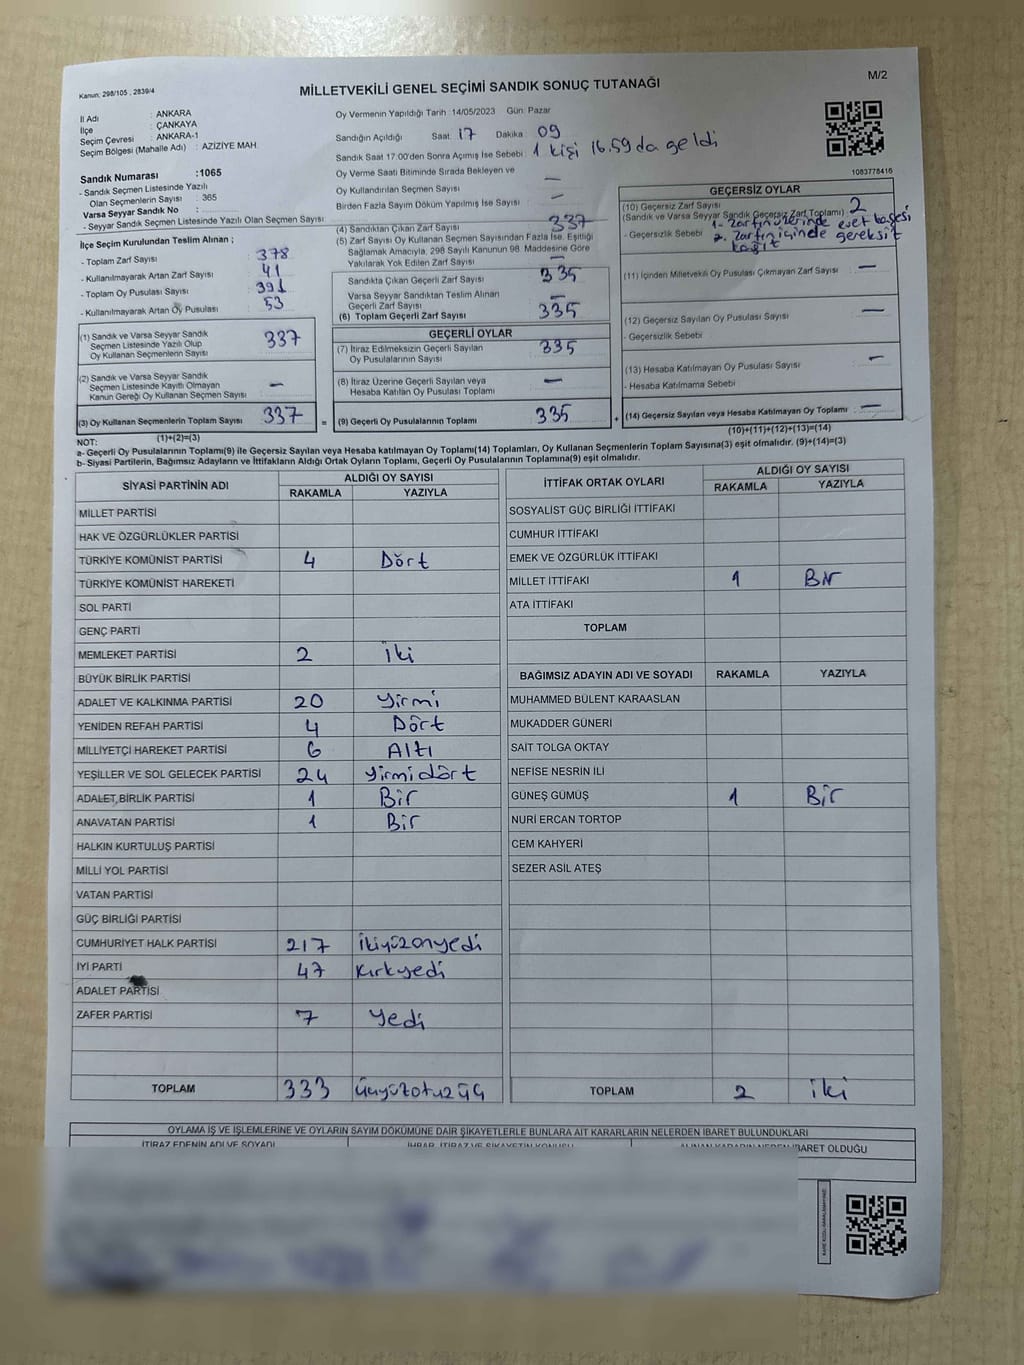 Kanun: 298/105 , 2839/4
MİLLETVEKİLİ GENEL SEÇİMİ SANDIK SONUÇ TUTANAĞI
M/2
İl Adı : ANKARA
İlçe : ÇANKAYA
Seçim Çevresi : ANKARA-1
Seçim Bölgesi (Mahalle Adı) : AZİZİYE MAH.
Oy Vermenin Yapıldığı Tarih 14/05/2023 Gün: Pazar
Sandığın Açıldığı Saat: 17 Dakika: 09
Sandık Saat 17:00'den Sonra Açımış İse Sebebi: 1 kişi 16.59 da geldi
Oy Verme Saati Bitiminde Sırada Bekleyen ve
Oy Kullandırılan Seçmen Sayısı —
Birden Fazla Sayım Döküm Yapılmış İse Sayısı : —
1083778416
Sandık Numarası :1065
- Sandık Seçmen Listesinde Yazılı
Olan Seçmenlerin Sayısı : 365
Varsa Seyyar Sandık No :
- Seyyar Sandık Seçmen Listesinde Yazılı Olan Seçmen Sayısı:
İlçe Seçim Kurulundan Teslim Alınan ;
- Toplam Zarf Sayısı : 378
- Kullanılmayarak Artan Zarf Sayısı : 41
- Toplam Oy Pusulası Sayısı : 391
- Kullanılmayarak Artan Oy Pusulası : 53
(1) Sandık ve Varsa Seyyar Sandık
Seçmen Listesinde Yazılı Olup
Oy Kullanan Seçmenlerin Sayısı 337
(2) Sandık ve Varsa Seyyar Sandık
Seçmen Listesinde Kayıtlı Olmayan
Kanun Gereği Oy Kullanan Seçmen Sayısı —
(3) Oy Kullanan Seçmenlerin Toplam Sayısı 337
(1)+(2)=(3)
(4) Sandıktan Çıkan Zarf Sayısı 337
(5) Zarf Sayısı Oy Kullanan Seçmen Sayısından Fazla İse, Eşitliği
Sağlamak Amacıyla, 298 Sayılı Kanunun 98. Maddesine Göre
Yakılarak Yok Edilen Zarf Sayısı —
Sandıkta Çıkan Geçerli Zarf Sayısı 335
Varsa Seyyar Sandıktan Teslim Alınan
Geçerli Zarf Sayısı —
(6) Toplam Geçerli Zarf Sayısı 335
GEÇERLİ OYLAR
(7) İtiraz Edilmeksizin Geçerli Sayılan
Oy Pusulalarının Sayısı 335
(8) İtiraz Üzerine Geçerli Sayılan veya
Hesaba Katılan Oy Pusulası Toplamı —
= (9) Geçerli Oy Pusulalarının Toplamı 335
GEÇERSİZ OYLAR
(10) Geçersiz Zarf Sayısı 2
(Sandık ve Varsa Seyyar Sandık Geçersiz Zarf Toplamı)
- Geçersizlik Sebebi 1- Zarfın üzerinde evet kaşesi
2. Zarfın içinde gereksiz
kağıt
(11) İçinden Milletvekili Oy Pusulası Çıkmayan Zarf Sayısı —
(12) Geçersiz Sayılan Oy Pusulası Sayısı —
- Geçersizlik Sebebi
(13) Hesaba Katılmayan Oy Pusulası Sayısı —
- Hesaba Katılmama Sebebi
+ (14) Geçersiz Sayılan veya Hesaba Katılmayan Oy Toplamı —
(10)+(11)+(12)+(13)=(14)
NOT:
a- Geçerli Oy Pusulalarının Toplamı(9) ile Geçersiz Sayılan veya Hesaba katılmayan Oy Toplamı(14) Toplamları, Oy Kullanan Seçmenlerin Toplam Sayısına(3) eşit olmalıdır. (9)+(14)=(3)
b- Siyasi Partilerin, Bağımsız Adayların ve İttifakların Aldığı Ortak Oyların Toplamı, Geçerli Oy Pusulalarının Toplamına(9) eşit olmalıdır.
SİYASİ PARTİNİN ADI ALDIĞI OY SAYISI
RAKAMLA YAZIYLA
MİLLET PARTİSİ
HAK VE ÖZGÜRLÜKLER PARTİSİ
TÜRKİYE KOMÜNİST PARTİSİ 4 Dört
TÜRKİYE KOMÜNİST HAREKETİ
SOL PARTİ
GENÇ PARTİ
MEMLEKET PARTİSİ 2 iki
BÜYÜK BİRLİK PARTİSİ
ADALET VE KALKINMA PARTİSİ 20 Yirmi
YENİDEN REFAH PARTİSİ 4 Dört
MİLLİYETÇİ HAREKET PARTİSİ 6 Altı
YEŞİLLER VE SOL GELECEK PARTİSİ 24 Yirmidört
ADALET BİRLİK PARTİSİ 1 Bir
ANAVATAN PARTİSİ 1 Bir
HALKIN KURTULUŞ PARTİSİ
MİLLİ YOL PARTİSİ
VATAN PARTİSİ
GÜÇ BİRLİĞİ PARTİSİ
CUMHURİYET HALK PARTİSİ 217 ikiyüzonyedi
İYİ PARTİ 47 kırkyedi
ADALET PARTİSİ
ZAFER PARTİSİ 7 Yedi
TOPLAM 333 üçyüzotuzüç
İTTİFAK ORTAK OYLARI ALDIĞI OY SAYISI
RAKAMLA YAZIYLA
SOSYALİST GÜÇ BİRLİĞİ İTTİFAKI
CUMHUR İTTİFAKI
EMEK VE ÖZGÜRLÜK İTTİFAKI
MİLLET İTTİFAKI 1 Bir
ATA İTTİFAKI
TOPLAM
BAĞIMSIZ ADAYIN ADI VE SOYADI RAKAMLA YAZIYLA
MUHAMMED BÜLENT KARAASLAN
MUKADDER GÜNERİ
SAİT TOLGA OKTAY
NEFİSE NESRİN İLİ
GÜNEŞ GÜMÜŞ 1 Bir
NURİ ERCAN TORTOP
CEM KAHYERİ
SEZER ASİL ATEŞ
TOPLAM 2 iki
OYLAMA İŞ VE İŞLEMLERİNE VE OYLARIN SAYIM DÖKÜMÜNE DAİR ŞİKAYETLERLE BUNLARA AİT KARARLARIN NELERDEN İBARET BULUNDUKLARI
İTİRAZ EDENİN ADI VE SOYADI İHBAR, İTİRAZ VE ŞİKAYETİN KONUSU ALINAN KARARIN NEDEN İBARET OLDUĞU